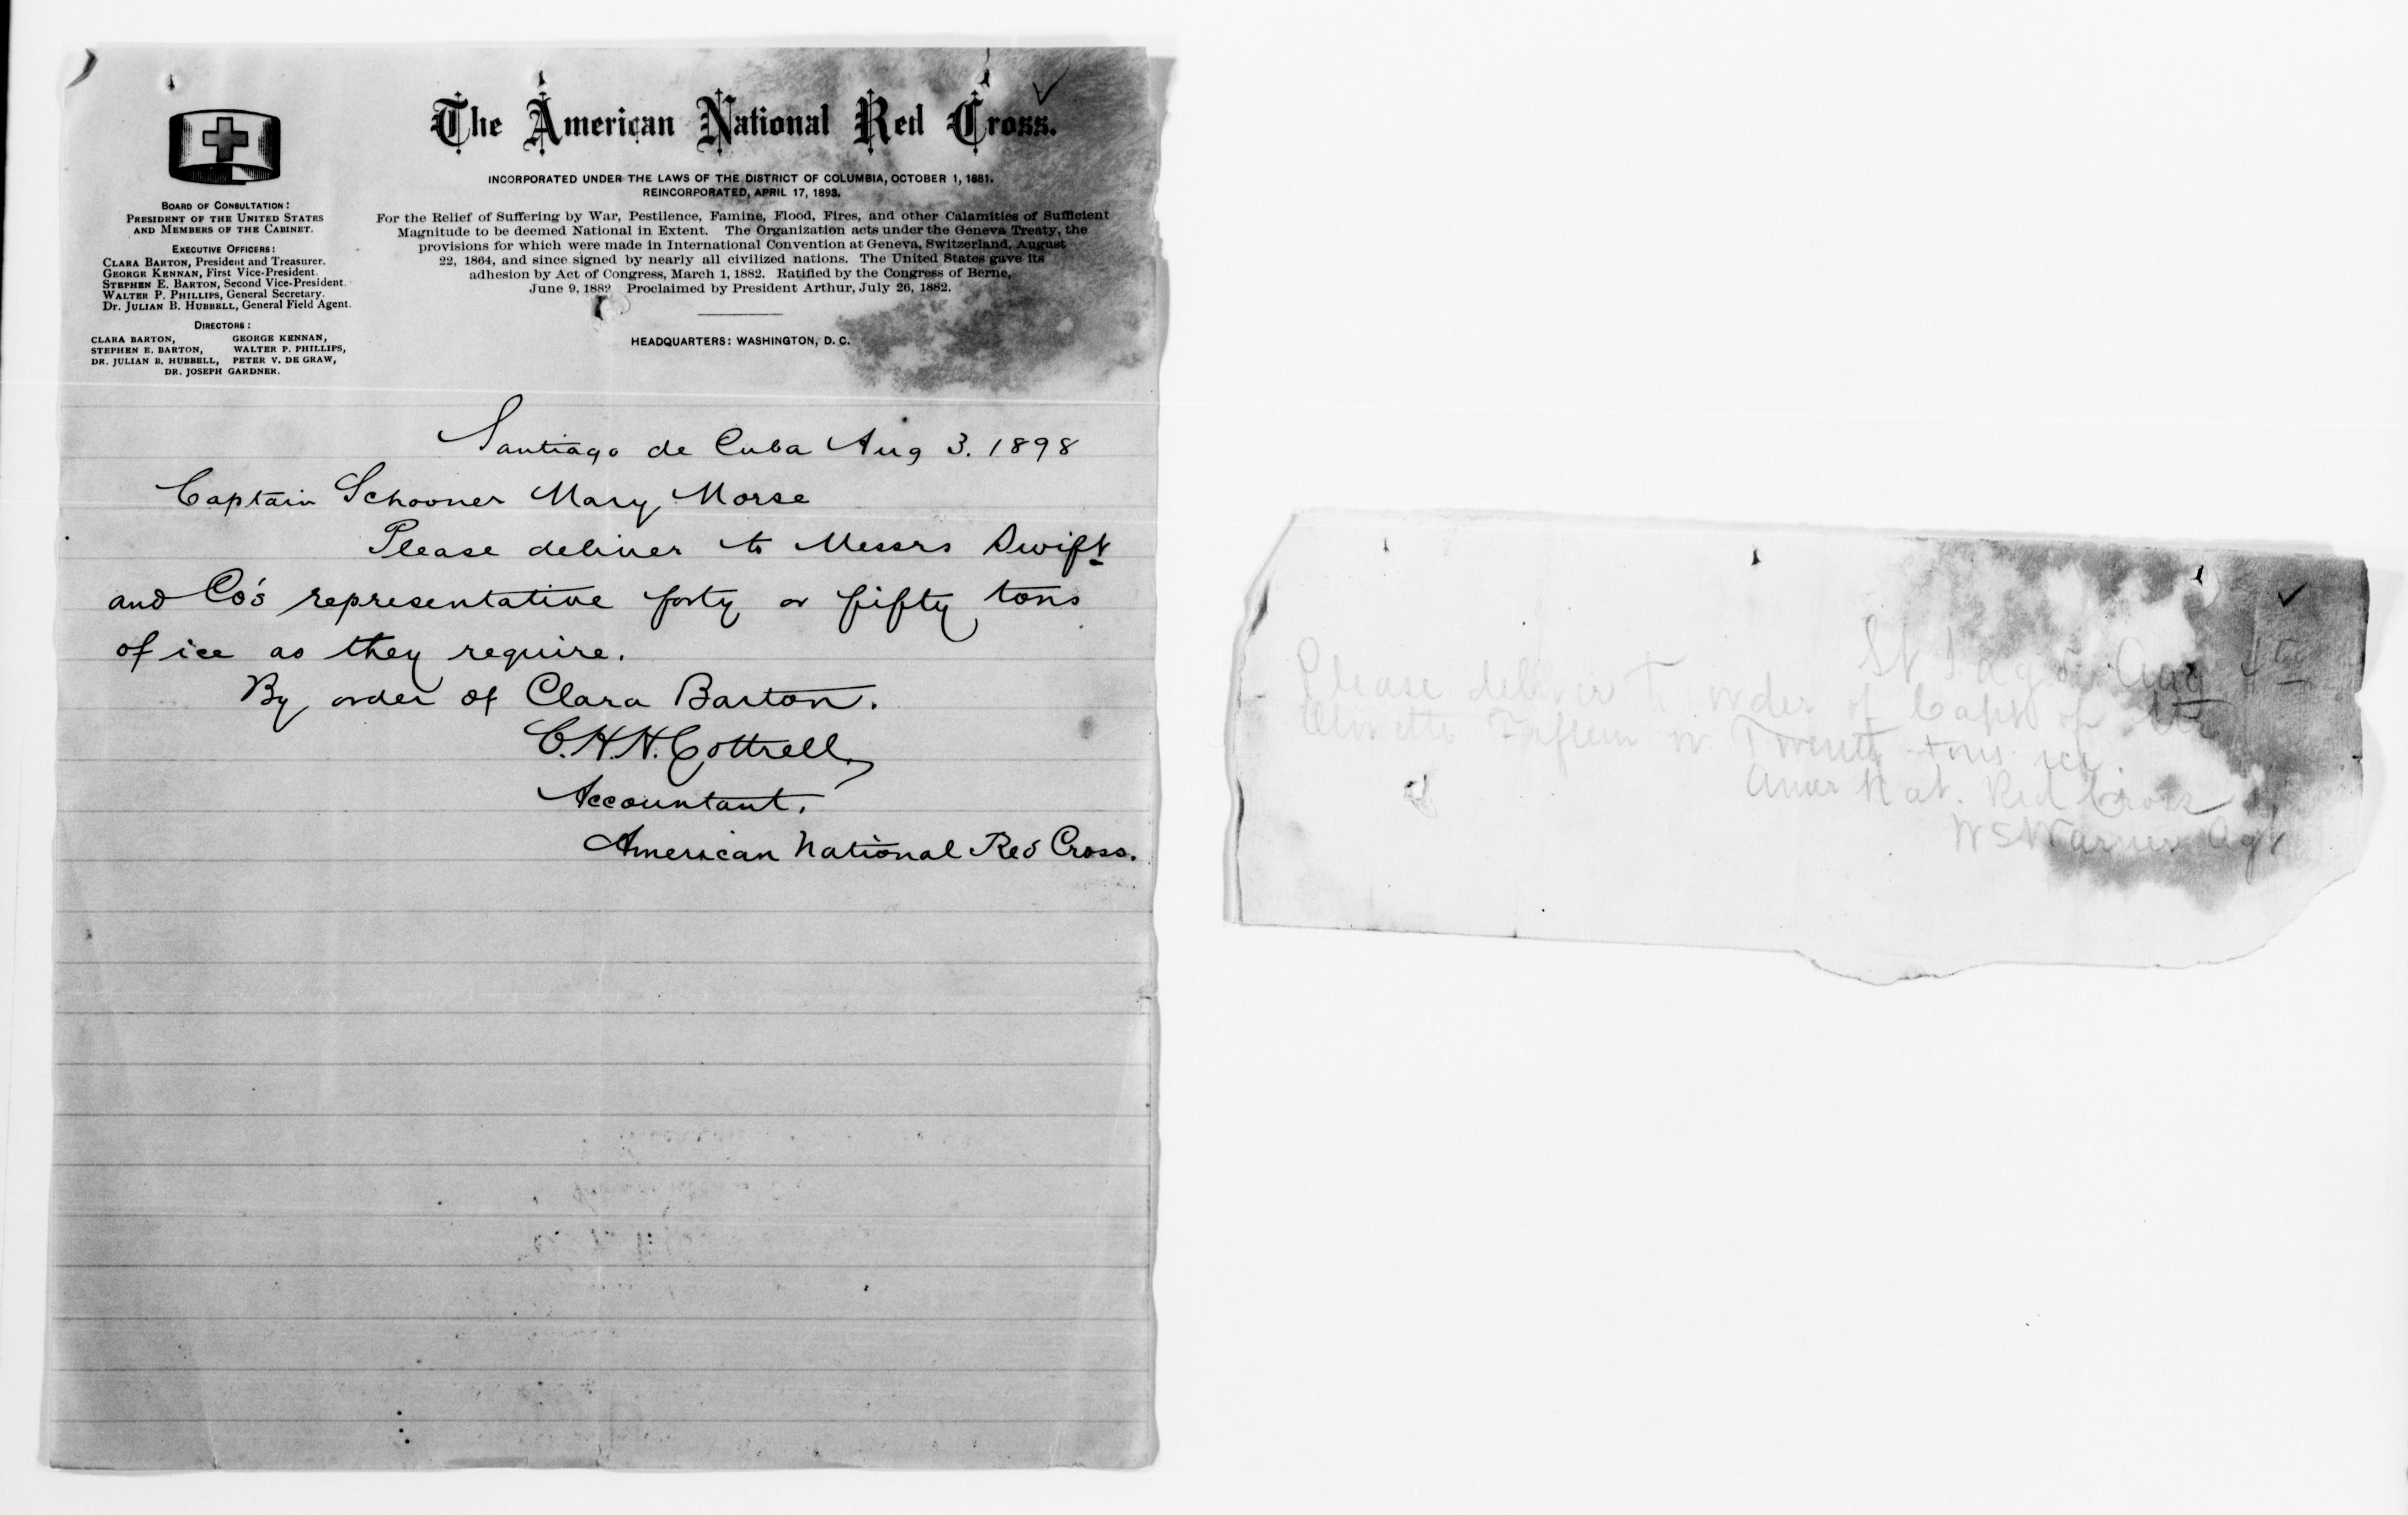 The American National Red Cross.
INCORPORATED UNDER THE LAWS OF THE DISTRICT OF COLUMBIA, OCTOBER 1, 1881.
REINCORPORATED, APRIL 17, 1893.
For the Relief of Suffering by War, Pestilence, Famine, Flood, Fires, and other Calamities of Sufficient
Magnitude to be deemed National in Extent. The Organization acts under the Geneva Treaty, the
provisions for which were made in International Convention at Geneva, Switzerland, August
22, 1864, and since signed by nearly all civilized nations. The United States gave its
adhesion by Act of Congress, March 1, 1882. Ratified by the Congress of Berne,
June 9, 1882 Proclaimed by President Arthur, July 26, 1882.
HEADQUARTERS: WASHINGTON, D. C.
BOARD OF CONSULTATION:
PRESIDENT OF THE UNITED STATES
AND MEMBERS OF THE CABINET.
EXECUTIVE OFFICERS:
CLARA BARTON, President and Treasurer.
GEORGE KENNAN, First Vice-President.
STEPHEN E. BARTON, Second Vice-President.
WALTER P. PHILLIPS, General Secretary.
DR. JULIAN B. HUBBELL, General Field Agent.
DIRECTORS:
CLARA BARTON, GEORGE KENNAN,
STEPHEN E. BARTON, WALTER P. PHILLIPS,
DR. JULIAN B. HUBBELL, PETER V. DE GRAW,
DR. JOSEPH GARDNER.
Santiago de Cuba Aug 3. 1898
Captain Schooner Mary Morse
Please deliver to Messrs Swift
and Co's representative forty or fifty tons
of ice as they require.
By order of Clara Barton.
C. H. H. Cottrell,
Accountant,
American National Red Cross.
Aug
Please deliver to order of Capt of
Olivette Fifteen or Twenty tons ice
Amer Nat. Red Cross
W S Warner Agt